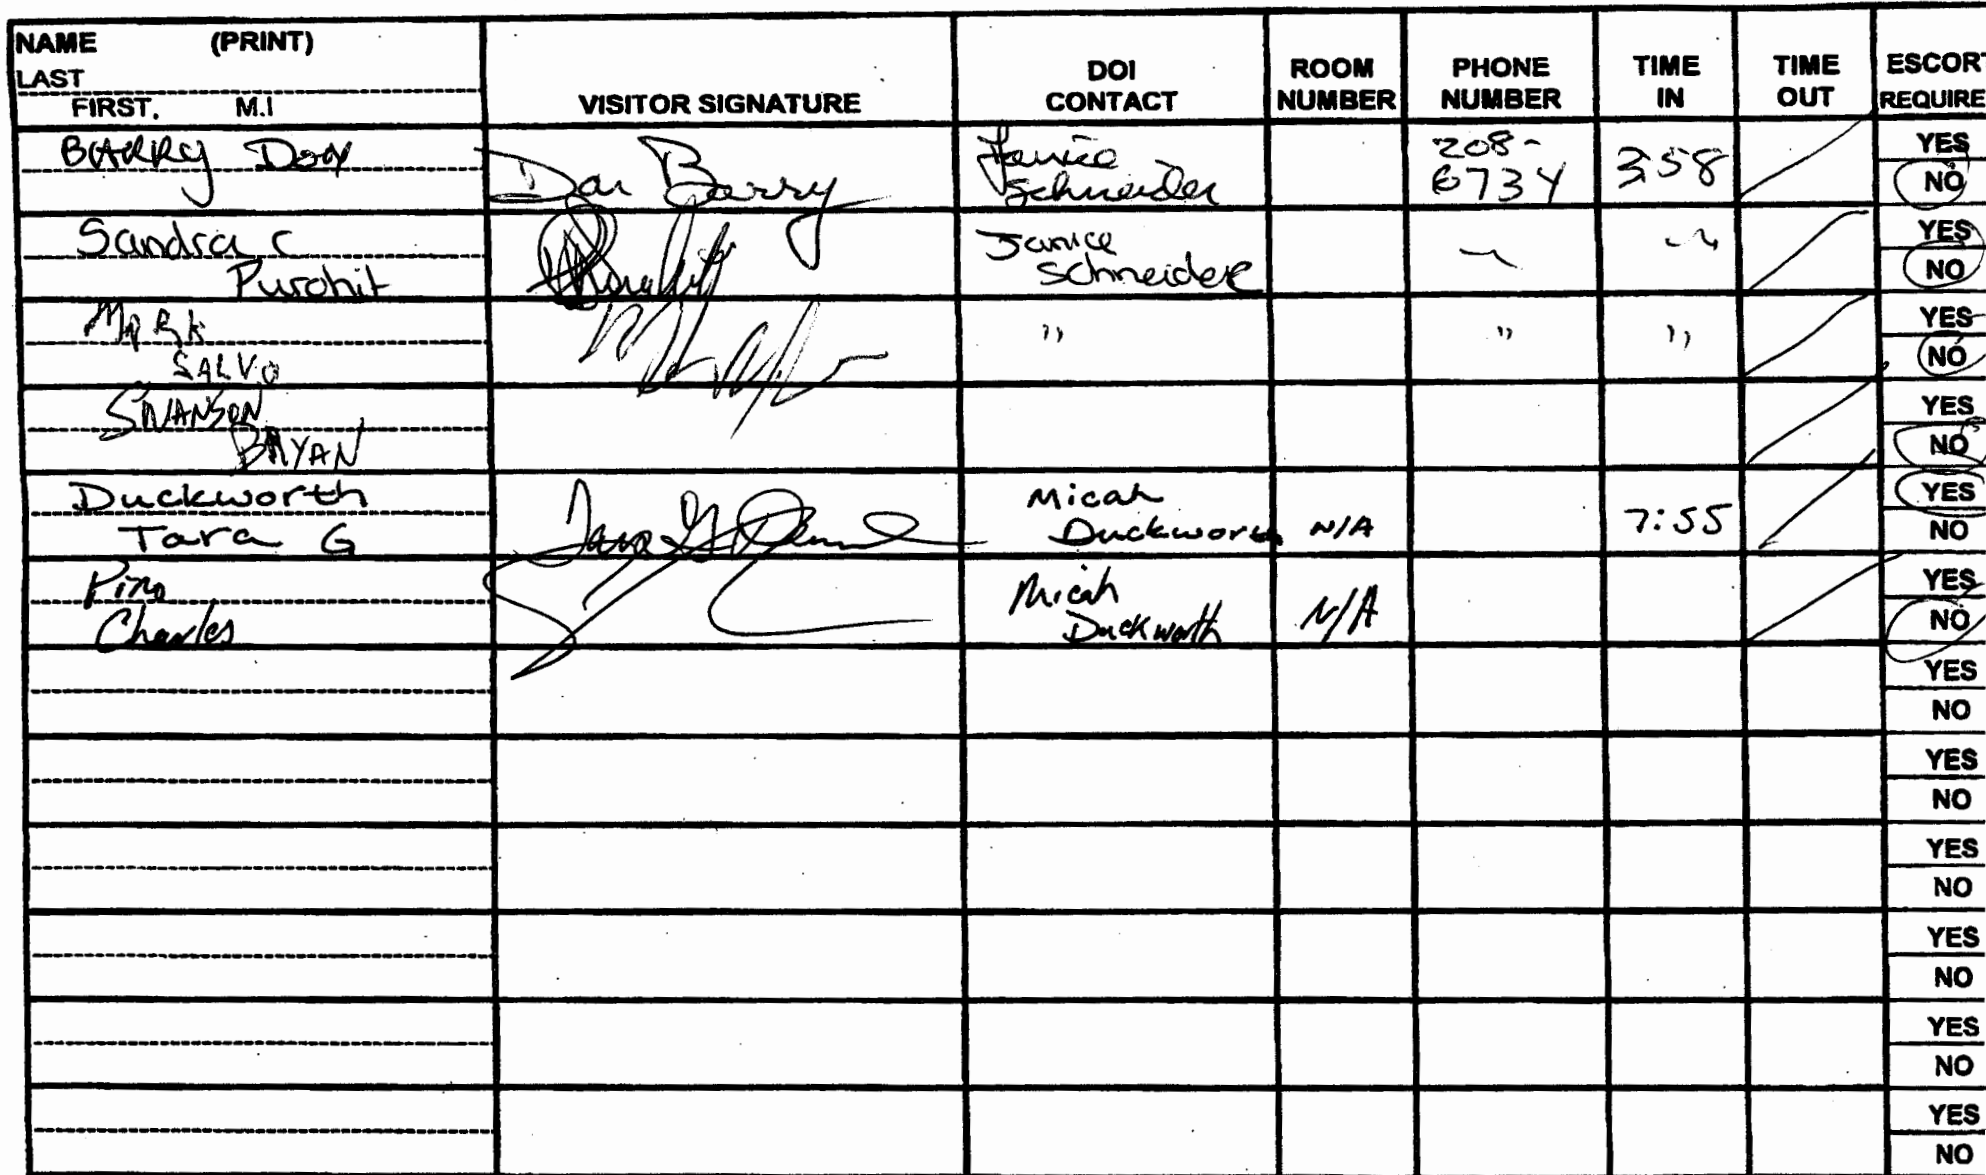 NAME (PRINT)
LAST
FIRST. M.I
VISITOR SIGNATURE
DOI
CONTACT
ROOM
NUMBER
PHONE
NUMBER
TIME
IN
TIME
OUT
ESCORT
REQUIRE
BARRY Don
Dan Barry
Janice
Schneider
208-
6734
3:58
YES
NO
Sandra C
Purohit
Janice
Schneider
YES
NO
Mark
SALVO
"
"
"
YES
NO
SWANSON
BRYAN
YES
NO
Duckworth
Tara G
Micah
Duckworth
N/A
7:55
YES
NO
Pino
Charles
Micah
Duckworth
N/A
YES
NO
YES
NO
YES
NO
YES
NO
YES
NO
YES
NO
YES
NO